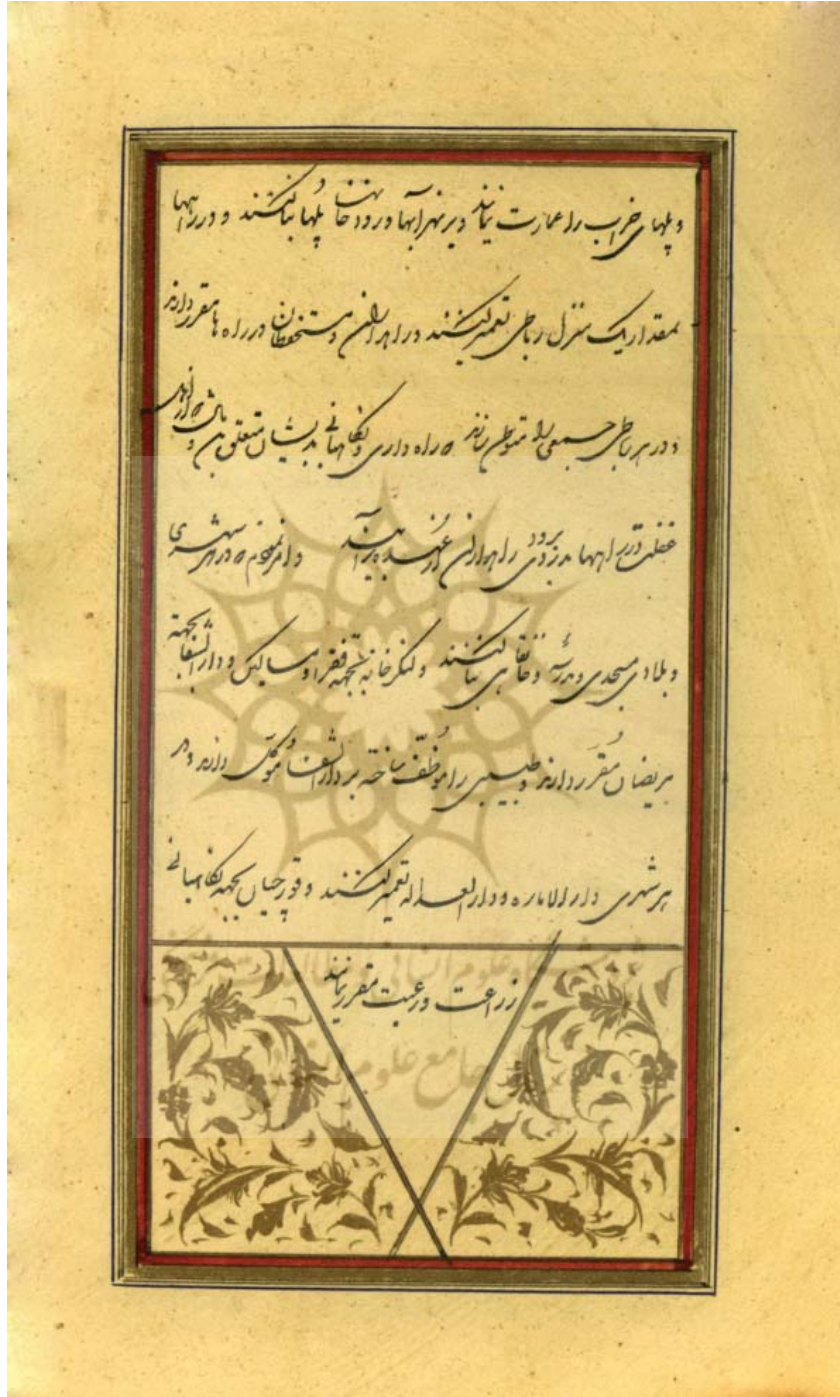 و پلهای خراب را عمارت نمایند و بر نهر آبها و رودخانها پلها بنا کنند و در راهها
بمقدار یک منزل رباطی تعمیر کنند و راهداران و مستحفظان در راه ها مقرر دارند
و در هر رباطی جمعی را متوطن سازند که راه داری و نگاهبانی بدیشان متعلق باشد و
غفلت در راهها بدزدی برود راهداران از عهده برآیند و در هر شهری
و بلادی مسجدی و مدرسه و خانقاهی بنا کنند و لنگرخانه بجهة فقرا و مساکین و دار الشفا بجهة
مریضان مقرر دارند و طبیبی را موظف ساخته بر دار الشفا موکل دارند و در
هر شهری دار الاماره و دار العداله تعمیر کنند و قورچیان بجهة نگاهبانی
زراعت و رعیت مقرر نمایند
جامع علوم انسانی